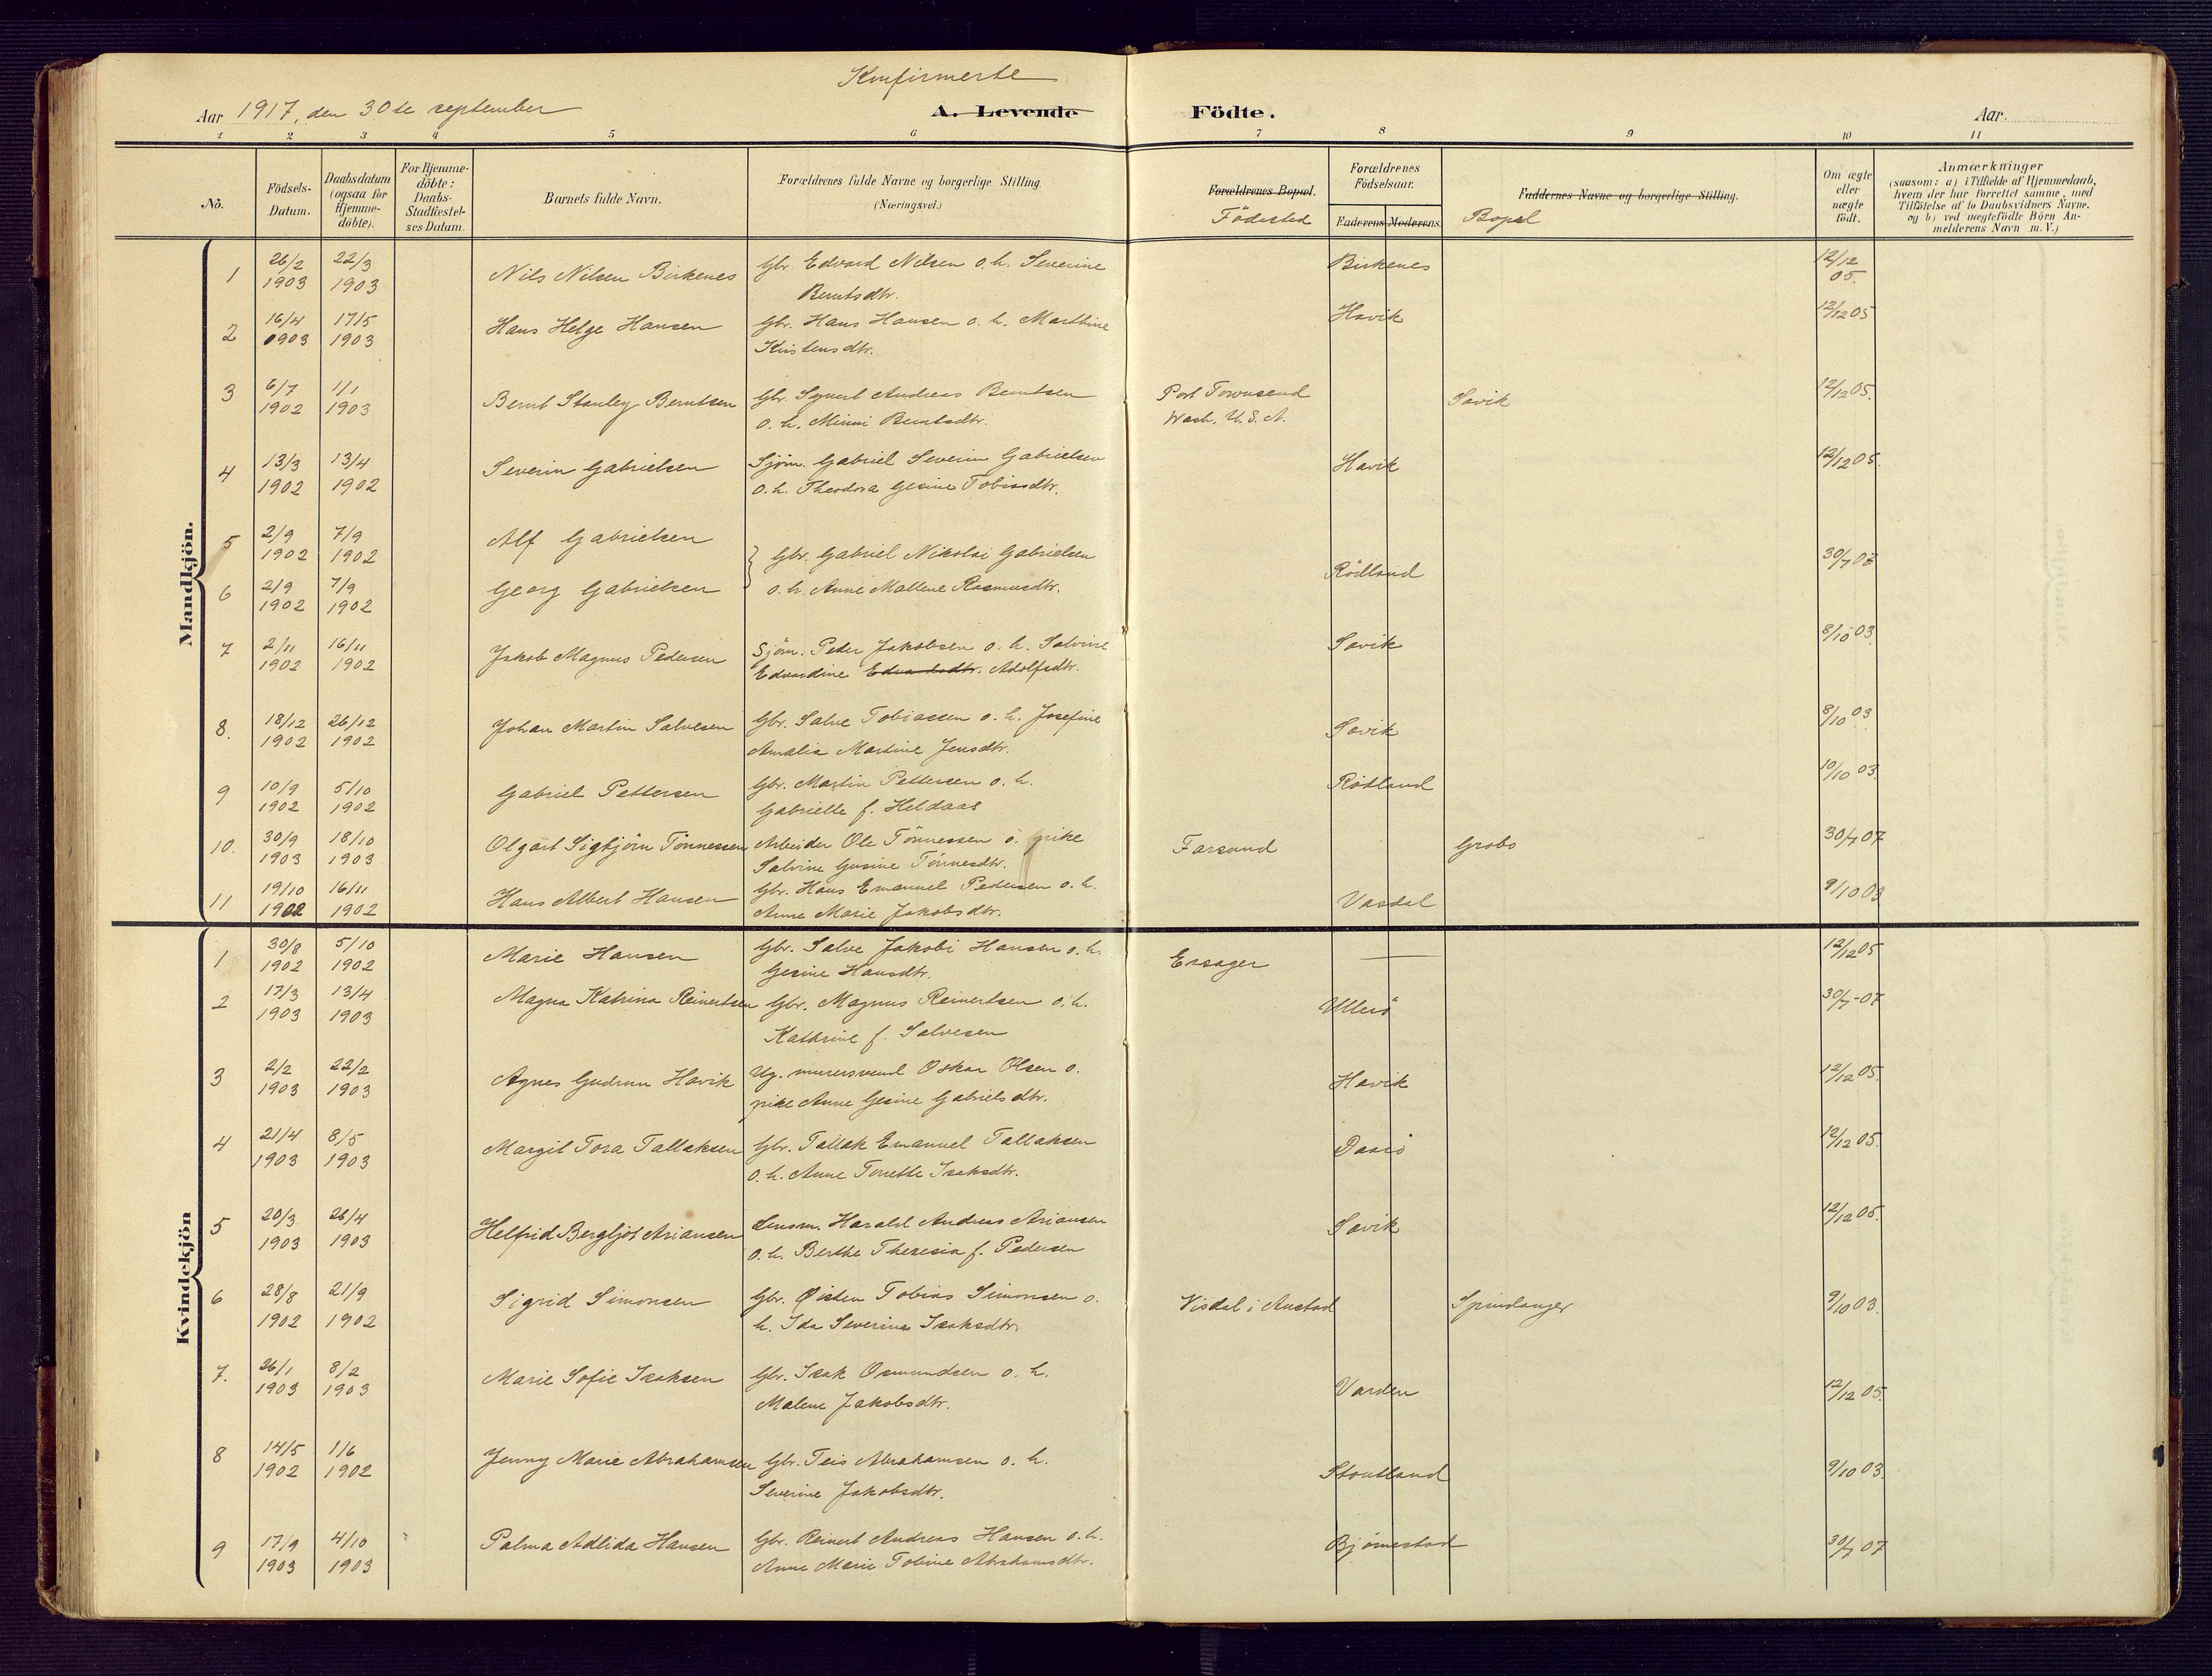 Konfirmerte
Aar 1917, den 30te september A. Levende Födte. Aar
1 2 3 4 5 6 7 8 9 10 11
No. Födsels-Datum. Daabsdatum (ogsaa for Hjemme-döbte). For Hjemme-döbte: Daabs-Stadfæstel-ses Datum. Barnets fulde Navn. Forældrenes fulde Navne og borgerlige Stilling (Næringsvei.) Forældrenes Bopæl. Födested Forældrenes Födselsaar. Faderens Moderens Faddernes Navne og borgerlige Stilling. Bopæl Om ægte eller uægte födt. Anmærkninger (saasom: a) i Tilfælde af Hjemmedaab, hvem der har forrettet samme, med Tilföielse af to Daabsvidners Navne, og b) ved uægtefödte Börn An-melderens Navn m. V.)
Mandkjön.
1 26/2 1903 22/3 1903 Nils Nilsen Birkenes Gbr. Edvard Nilsen o. h. Severine Berntsdtr. Birkenes 12/12 05.
2 16/4 1903 17/5 1903 Hans Helge Hansen Gbr. Hans Hansen o. h. Marthine Kristensdtr. Havik 12/12 05
3 6/7 1902 1/1 1903 Bernt Stanley Berntsen Gbr. Syvert Andreas Berntsen o. h. Minni Berntsdtr. Port Townsend Wash. U. S. A. Savik 12/12 05.
4 13/3 1902 13/4 1902 Severin Gabrielsen Sjöm. Gabriel Severin Gabrielsen o. h. Theodora Gesine Tobiasdtr. Havik 12/12 05.
5 2/9 1902 7/9 1902 Alf Gabrielsen } Gbr. Gabriel Nikolai Gabrielsen 30/7 07
6 2/9 1902 7/9 1902 Georg Gabrielsen o. h. Anne Mallene Rasmusdtr. Rödland
7 2/11 1902 16/11 1902 Jakob Magnus Pedersen Sjöm. Peter Jakobsen o. h. Salvine Edvardine Edvardsdtr. Adolfsdtr. Savik 8/10 03
8. 18/12 1902 26/12 1902 Johan Martin Salvesen Gbr. Salve Tobiassen o. h. Josefine Amalia Martine Jensdtr. Savik 8/10 03
9 10/9 1902 5/10 1902 Gabriel Pettersen Gbr. Martin Pettersen o. h. Gabrielle f. Heldaas Rödland 10/10 03.
10. 30/9 1903 18/10 1903 Olgart Sigbjörn Tönnessen Arbeider Ole Tönnessen o. pike Salvine Gusine Tönnesdtr. Farsund Grobs 30/7 07
11 19/10 1902 16/11 1902 Hans Albert Hansen Gbr. Hans Emanuel Pedersen o. h. Anne Marie Jakobsdtr. Vasdal 9/10 03
Kvindekjön
1 30/8 1902 5/10 1902 Marie Hansen Gbr. Salve Jakobi Hansen o. h. Gesine Hansdtr. Ersager — 12/12 05
2 17/3 1903 13/4 1903 Magna Katrina Reinertsen Gbr. Magnus Reinertsen o. h. Kathrine f. Salvesen Ullerö 30/7-07
3 2/2 1903 22/2 1903 Agnes Gudrun Havik Ug. murersvend Oskar Olsen o. pike Anne Gesine Gabrielsdtr. Havik 12/12 05.
4 21/4 1903 8/5 1903 Margit Tora Tallaksen Gbr. Tallak Emanuel Tallaksen o. h. Anne Tonette Isaksdtr. 12/12 05.
5 20/3 1903 26/4 1903 Helfrid Bergljot Ariansen Lensm. Harald Andreas Ariansen o. h. Berthe Theresia f. Pedersen Savik 12/12 05.
6 28/8 1902 21/9 1902 Sigrid Simonsen Gbr. Øisten Tobias Simonsen o. h. Ida Severine Isaksdtr. Visdal i Austad Spindanger 9/10 03.
7. 26/1 1903 8/2 1903 Marie Sofie Isaksen Gbr. Isak Osmundsen o. h. Malene Jakobsdtr. Varden 12/12 05.
8 14/5 1902 1/6 1902 Jenny Marie Abrahamsen Gbr. Teis Abrahamsen o. h. Severine Jakobsdtr. Stoutland 9/10 03.
9 17/9 1903 4/10 1903 Palma Adlida Hansen Gbr. Reinert Andreas Hansen o. h. Anne Marie Tobine Abrahamsdtr. Björnestad 30/7 07